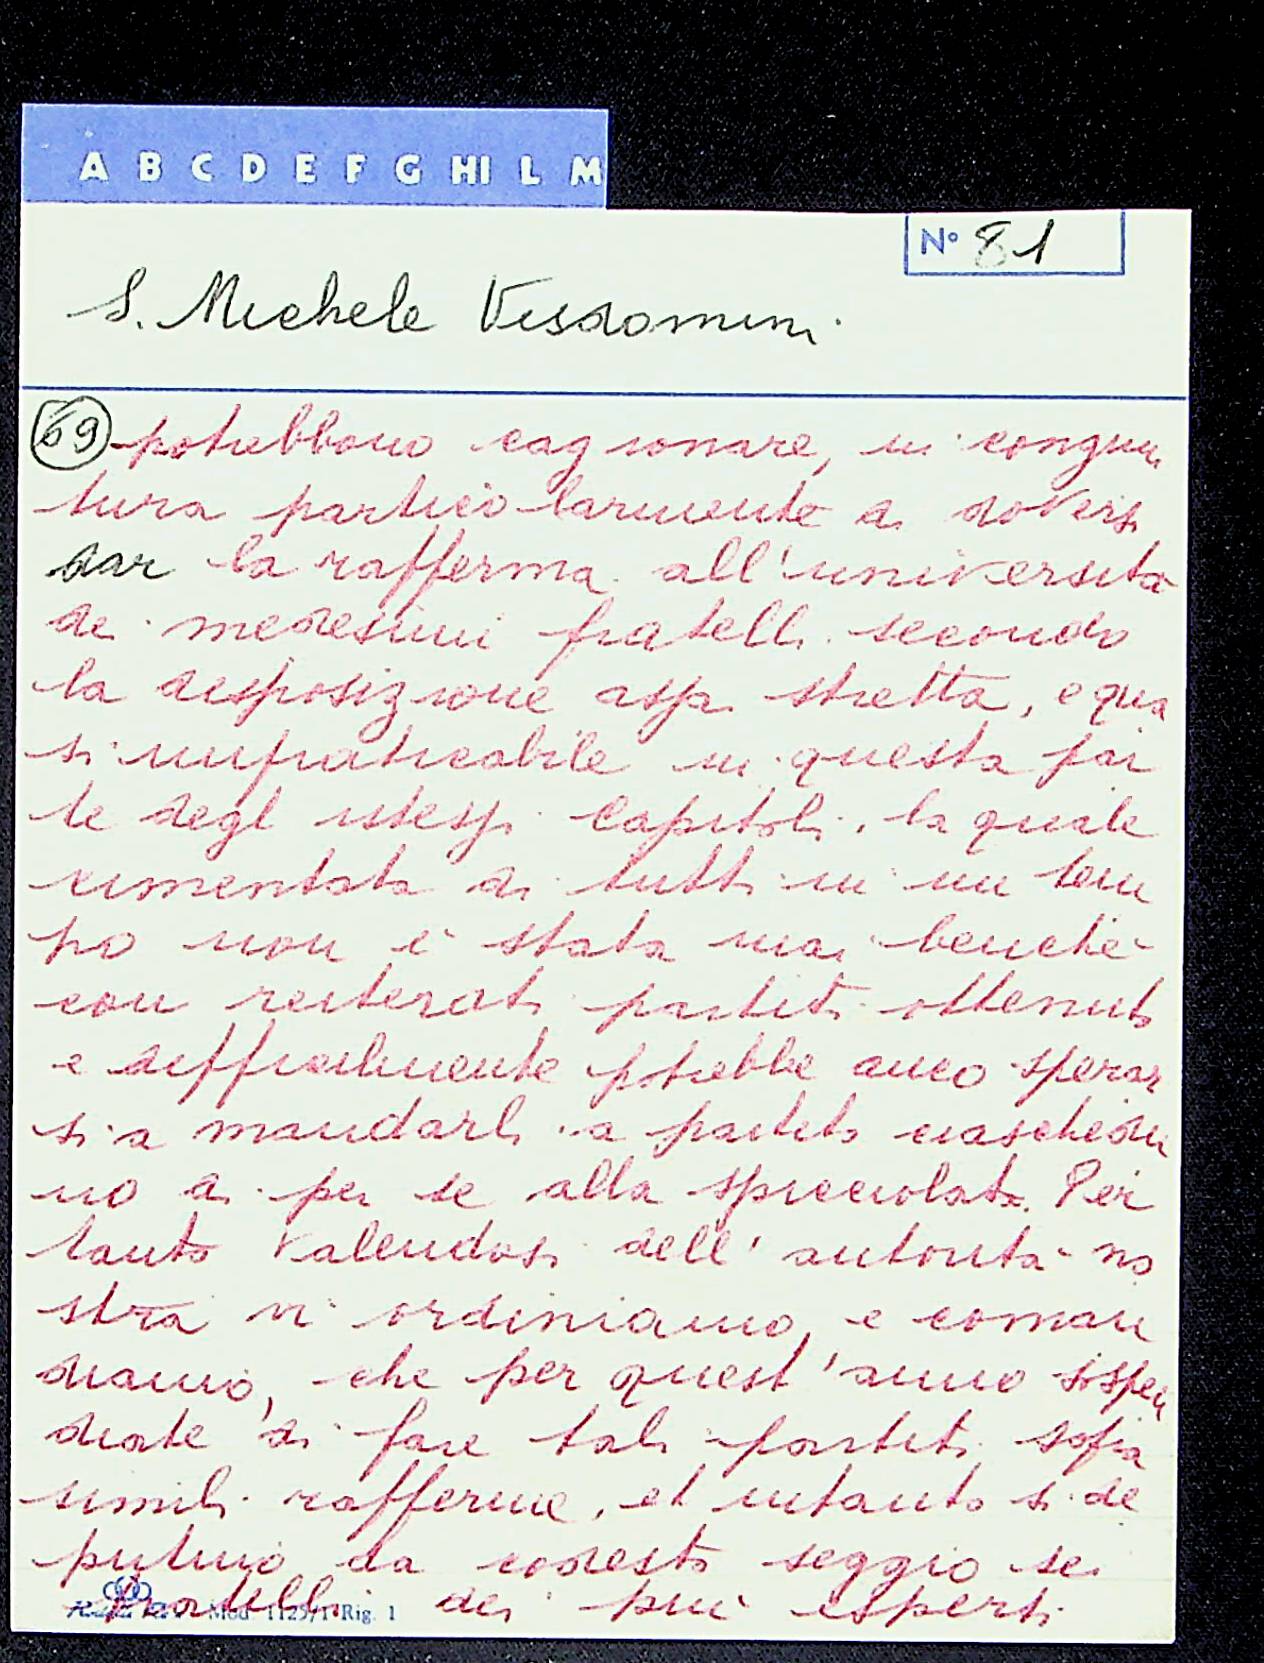 A B C D E F G HI L M
N° 81
S. Michele Visdomini
69 potrebbono cagionare, in congiun
tura particolarmente di doversi
dar la rafferma all'università
de medesimi fratelli secondo
la disposizione assai stretta, e qua
si impraticabile in questa par
te degl istessi Capitoli, la quale
cimentata di tutti in un tem
po non è stata mai benchè
con reiterati partiti ottenuta
e difficilmente potrebbe anco sperar
si a mandarli a partito ciaschedu
no di per se alla spicciolata. Per
tanto valendosi dell' autorità no
stra vi ordiniamo, e coman
diamo, che per quest'anno sospen
diate di fare tali partiti sopra
simili rafferme, et intanto si de
putino da codesto seggio sei
fratelli dei più esperti
Mod. 1125/1 Rig. 1